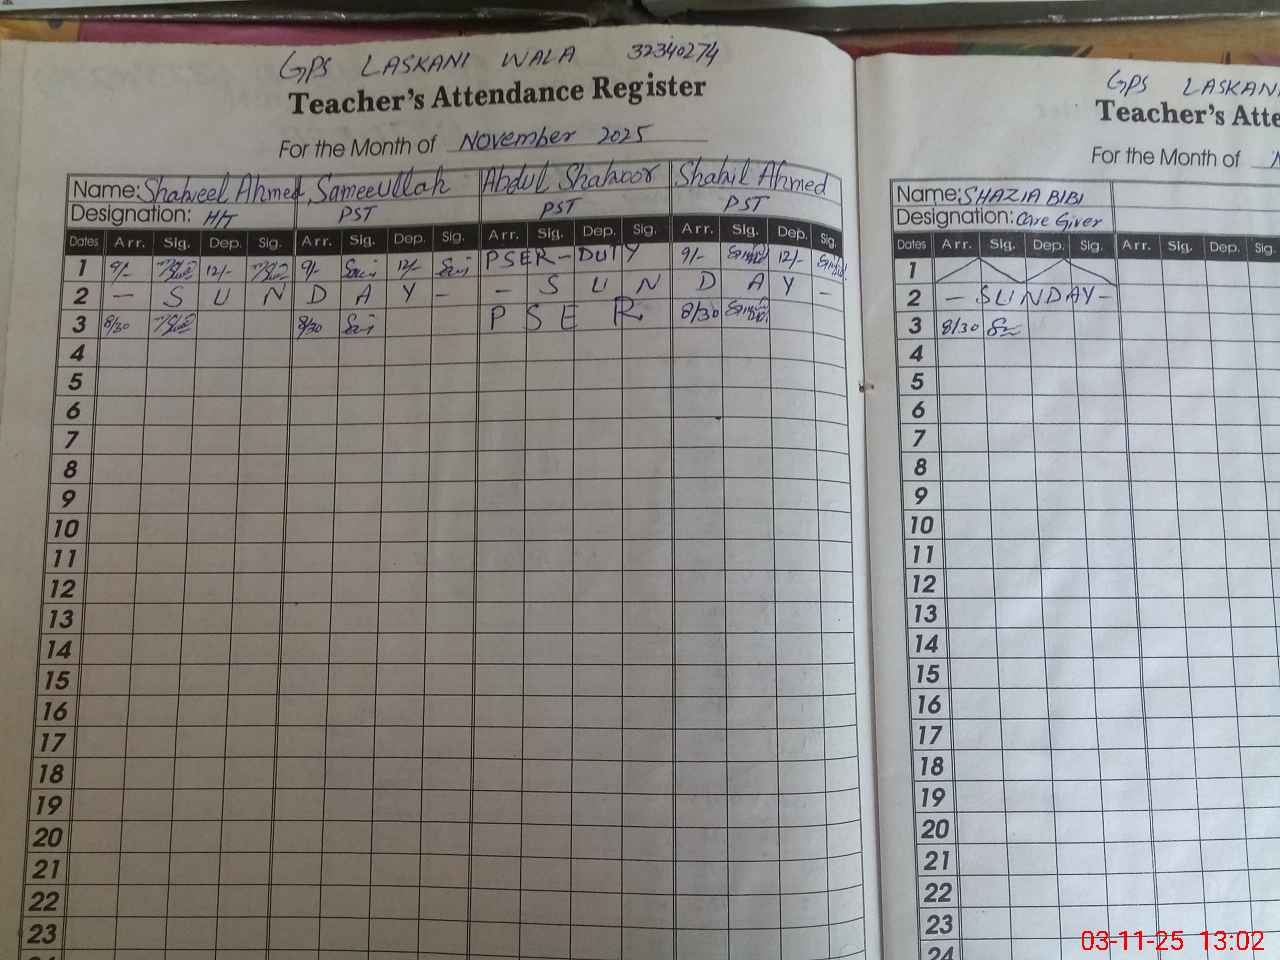 GPS LASKANI WALA 32340274
Teacher's Attendance Register
For the Month of November 2025
Name: Shahjeel Ahmed Sameeullah Abdul Shakoor Shahil Ahmed
Designation: H/T PST PST PST
Dates Arr. Sig. Dep. Sig. Arr. Sig. Dep. Sig. Arr. Sig. Dep. Sig. Arr. Sig. Dep. Sig.
1 9/- 12/- 9/- 12/- PSER-DUTY 9/- 12/-
2 - S U N D A Y - - S U N D A Y -
3 8/30 8/30 P S E R 8/30
4
5
6
7
8
9
10
11
12
13
14
15
16
17
18
19
20
21
22
23
GPS LASKANI
Teacher's Atte
For the Month of
Name: SHAZIA BIBI
Designation: Care Giver
Dates Arr. Sig. Dep. Sig. Arr. Sig. Dep. Sig.
1
2 - SUNDAY -
3 8/30
4
5
6
7
8
9
10
11
12
13
14
15
16
17
18
19
20
21
22
23
24
03-11-25 13:02